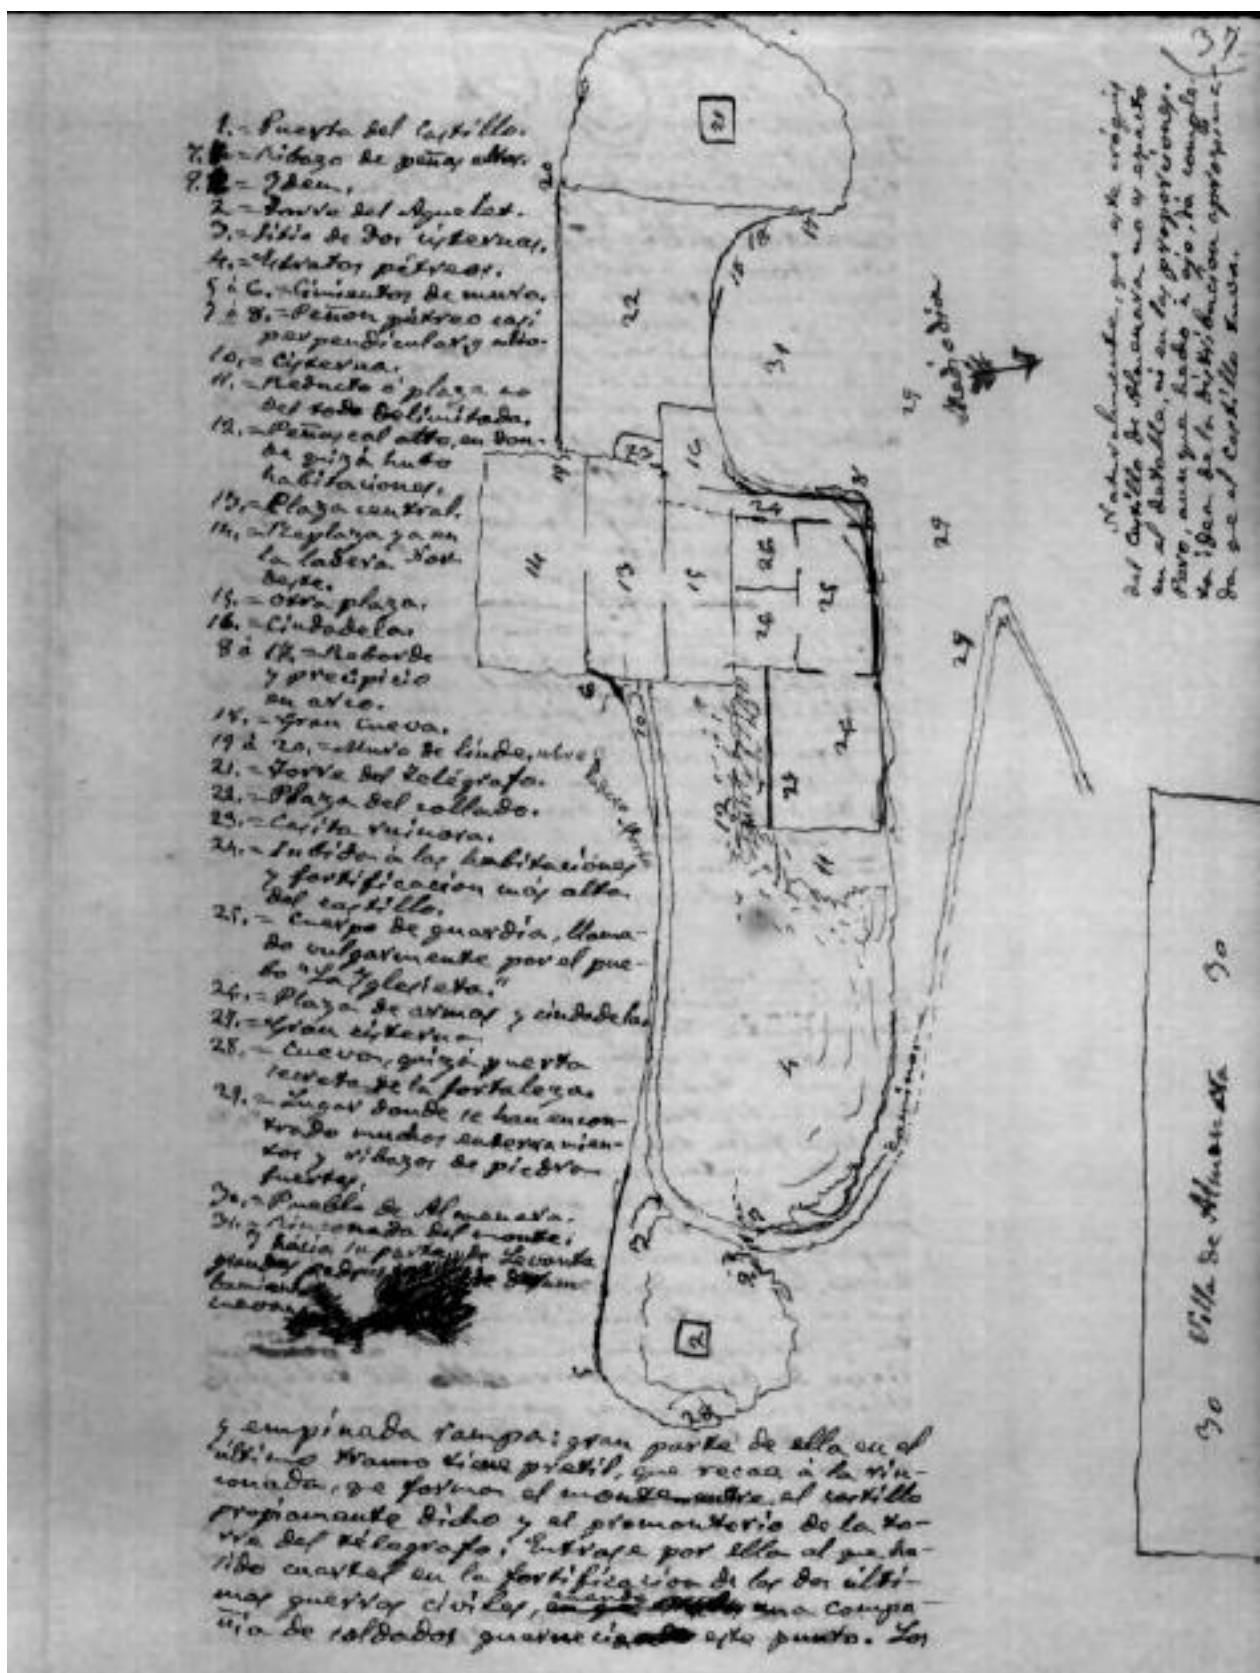 37
1.- Puerta del Castillo.
7. - Ribazo de peñas altas.
9. - Idem.
2.- Torre del Agüelet.
3.- Sitio de dos cisternas.
4.- Estratos pétreos.
5 á 6.- Cimientos de muro.
7 á 8.- Peñon pétreo casi
perpendicular, y alto.
10.- Cisterna.
11.- Reducto ó plaza no
del todo delimitada.
12.- Peñascal alto, en don-
de quizá hubo
habitaciones.
13.- Plaza central.
14.- Replaza ya en
la ladera Nor-
deste.
15.- Otra plaza.
16.- Ciudadela.
8 á 17.- Reborde
y precipicio
en arco.
18.- Gran cueva.
19 á 20.- Muro de linde,
21.- Torre del Telégrafo.
22.- Plaza del collado.
23.- Casita ruinosa.
24.- Subida á las habitaciones
y fortificacion más alta
del castillo.
25.- Cuerpo de guardia, llama-
do vulgarmente por el pue-
blo "La Iglesieta."
26.- Plaza de armas y ciudadela.
27.- Gran cisterna
28.- Cueva, quizá puerta
secreta de la fortaleza.
29.- Lugar donde se han encon-
trado muchos enterramien-
tos y ribazos de piedra
fuertes.
30.- Pueblo de Almenara.
31.- Rinconada del monte.
Y hácia su parte de Levante
grandes
cuevas
Naturalmente, que este cróquis
del Castillo de Almenara no es exacto
en el detalle, ni en las proporciones.
Pero, aunque hecho á ojo, dá comple-
ta idea de la distribucion aproxima-
da que el Castillo tuvo.
Mediodia
camino
21
20
17
18
22
31
29
19
23
16
8
24
14
13
15
26
25
29
26
29
6
10
24
12
27
11
4
3
9
2
5
28
30 Villa de Almenara 30
y empinada rampa: gran parte de ella en el
último tramo tiene pretil, que recae á la rin-
conada, que forma el monte entre el castillo
propiamente dicho y el promontorio de la to-
rre del telégrafo. Entrase por ella al que ha
sido cuartel en la fortificacion de las dos últi-
mas guerras civiles, cuando una compa-
ñia de soldados guarnecia este punto. Los